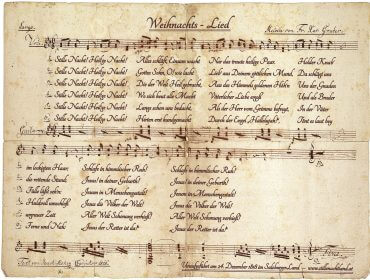 Weihnachts - Lied
Largo.
Melodie von Fr. Xav. Gruber.
Stille Nacht! Heilige Nacht! Alles schläft; Einsam wacht Nur das traute heilige Paar. Holder Knab'
Stille Nacht! Heilige Nacht! Gottes Sohn, O! wie lacht Lieb' aus Deinem göttlichen Mund, Da schlägt uns
Stille Nacht! Heilige Nacht! Die der Welt Heil gebracht, Aus des Himmels goldenen Höh'n Uns der Gnaden
Stille Nacht! Heilige Nacht! Wo sich heut alle Macht Väterlicher Liebe ergoß Und als Bruder
Stille Nacht! Heilige Nacht! Lange schon uns bedacht, Als der Herr vom Grimme befreyt, In der Väter
Stille Nacht! Heilige Nacht! Hirten erst kundgemacht Durch der Engel „Halleluja!" Tönt es laut bey
im lockigten Haar, Schlafe in himmlischer Ruh! Schlafe in himmlischer Ruh!
die rettende Stund; Jesus! in deiner Geburth! Jesus! in deiner Geburth!
Fülle läßt seh'n: Jesum in Menschengestalt! Jesum in Menschengestalt!
Huldvoll umschloß Jesus die Völker der Welt. Jesus die Völker der Welt.
urgrauer Zeit Aller Welt Schonung verhieß! Aller Welt Schonung verhieß!
Ferne und Nah: Jesus der Retter ist da! Jesus der Retter ist da!
Text von Joseph Mohr
Uraufgeführt am 24. Dezember 1818 im Salzburger Land